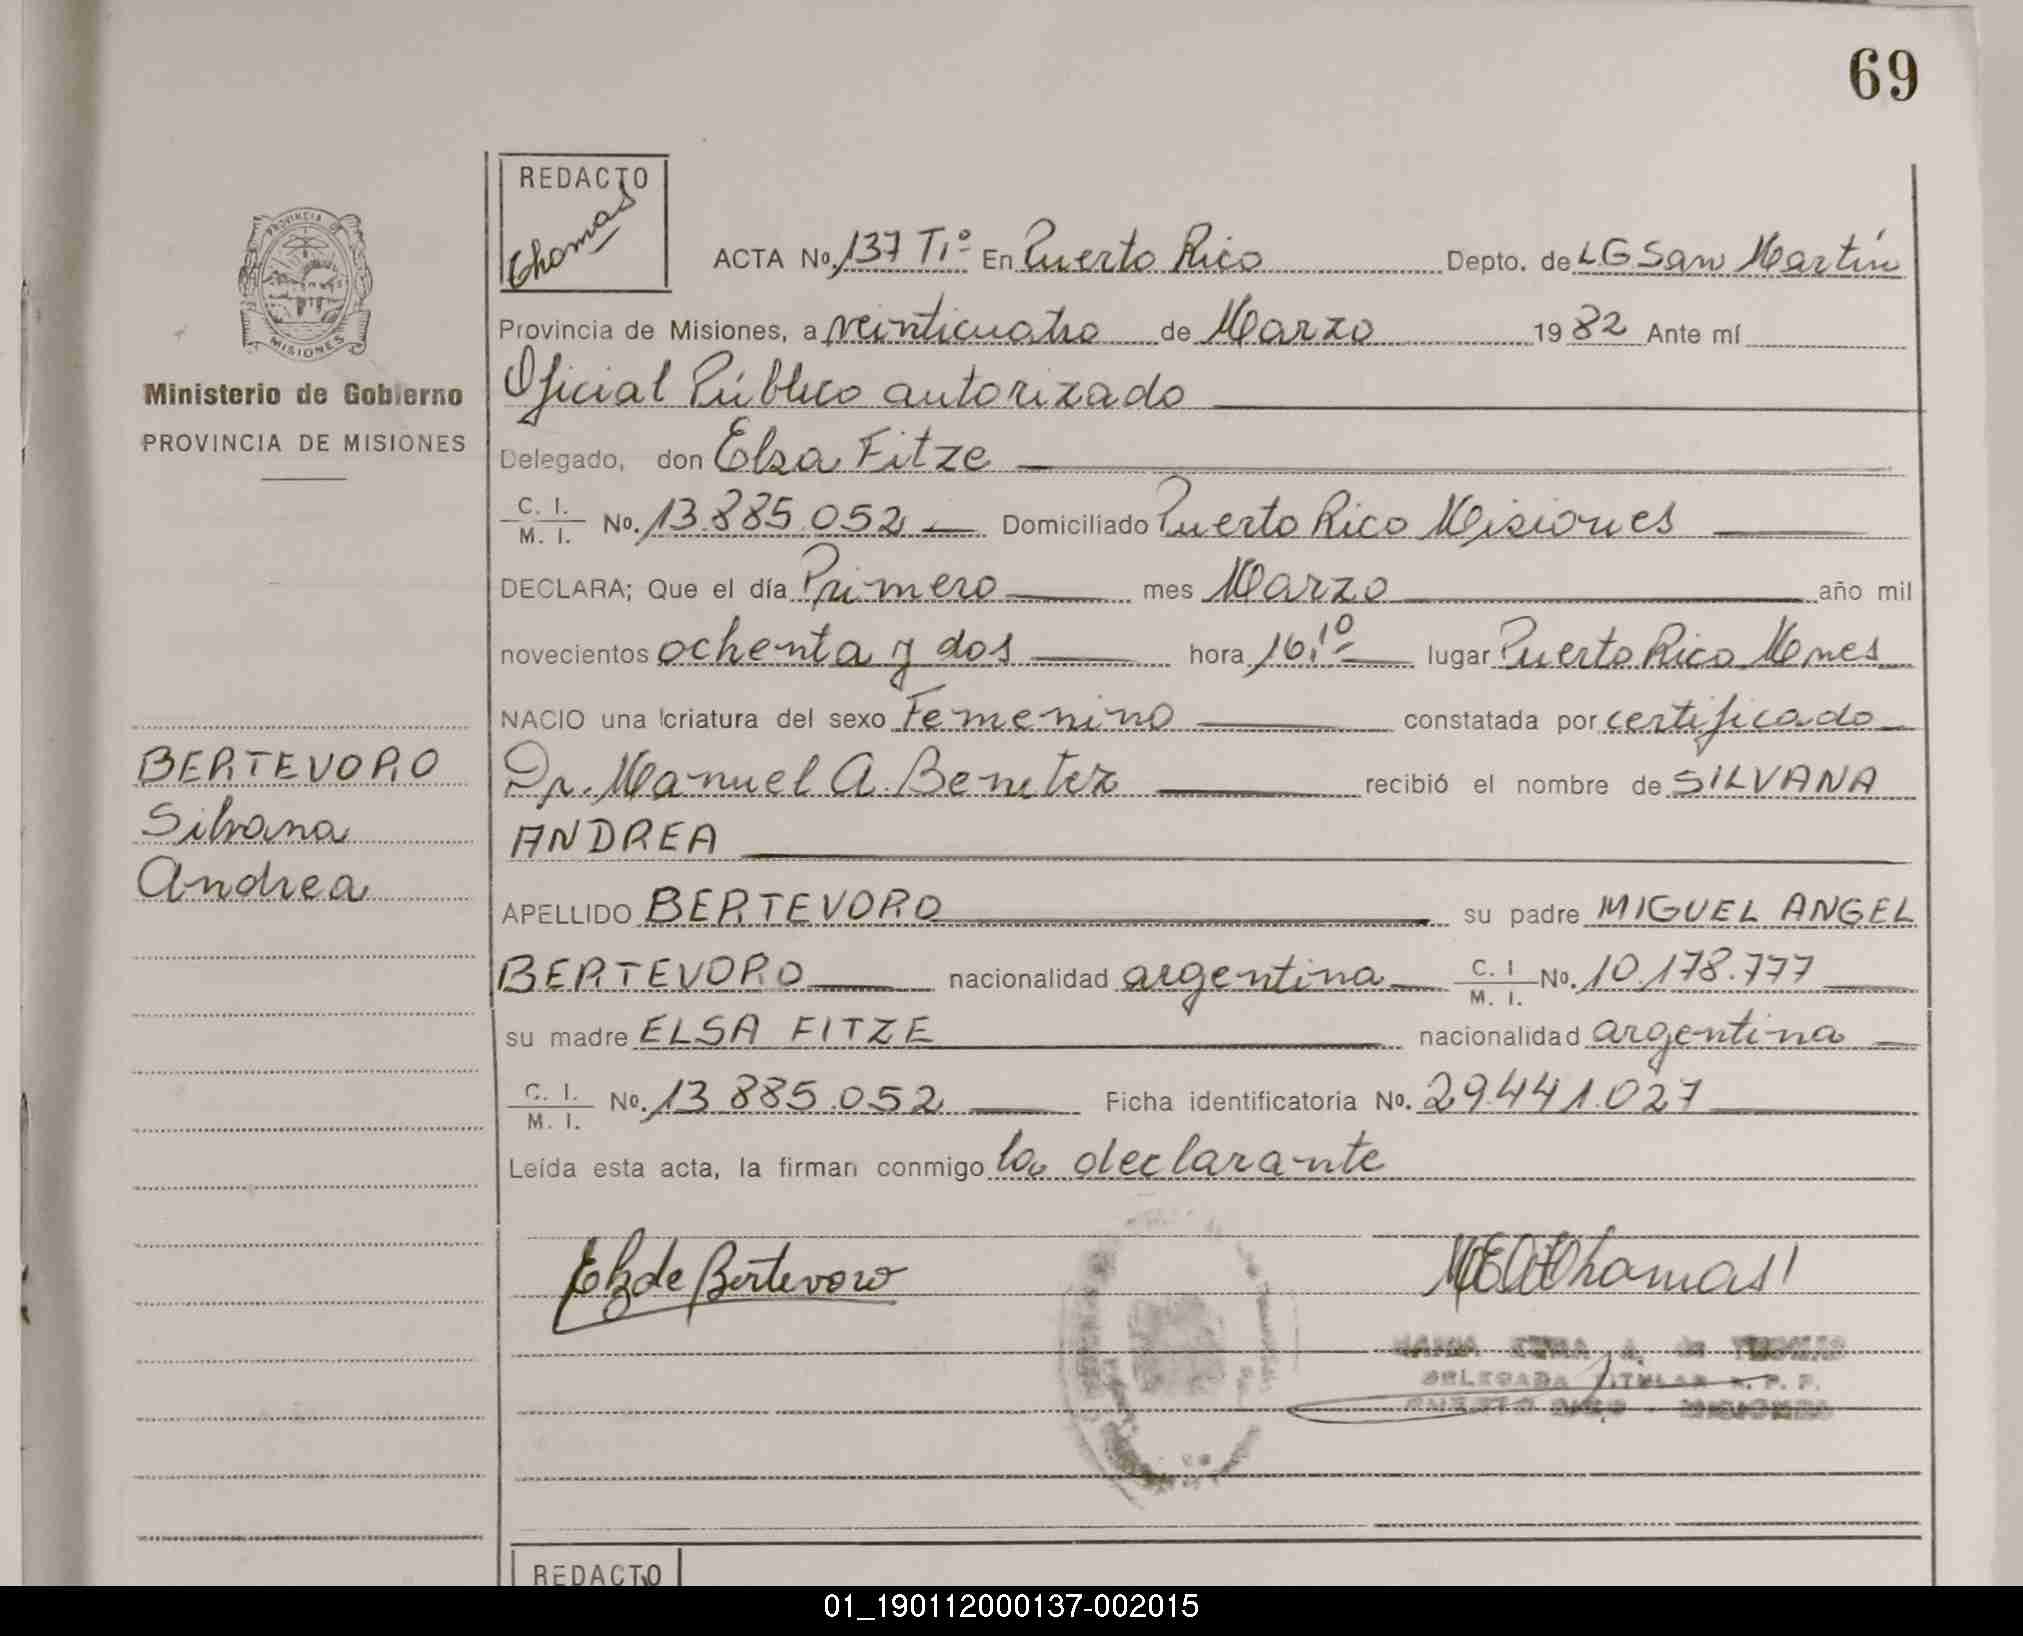 69
REDACTO
Thomas
PROVINCIA DE
MISIONES
Ministerio de Gobierno
PROVINCIA DE MISIONES
BERTEVORO
Silvana
Andrea
ACTA No. 137 T1º En Puerto Rico Depto. de L.G San Martín
Provincia de Misiones, a veinticuatro de Marzo 1982 Ante mí
Oficial Público autorizado
Delegado, don Elsa Fitze
C. I. / M. I. No. 13.885.052 Domiciliado Puerto Rico Misiones
DECLARA; Que el día Primero mes Marzo año mil
novecientos ochenta y dos hora 16,10 lugar Puerto Rico Mnes
NACIO una criatura del sexo Femenino constatada por certificado
Dr. Manuel A. Benitez recibió el nombre de SILVANA
ANDREA
APELLIDO BERTEVORO su padre MIGUEL ANGEL
BERTEVORO nacionalidad argentina C. I / M. I. No. 10.178.777
su madre ELSA FITZE nacionalidad argentina
C. I. / M. I. No. 13.885.052 Ficha identificatoria No. 29.441.027
Leída esta acta, la firman conmigo la declarante
E F de Bertevoro
Thomas
DELEGADA TITULAR R. P. P.
PUERTO RICO - MISIONES
REDACTO
01_190112000137-002015